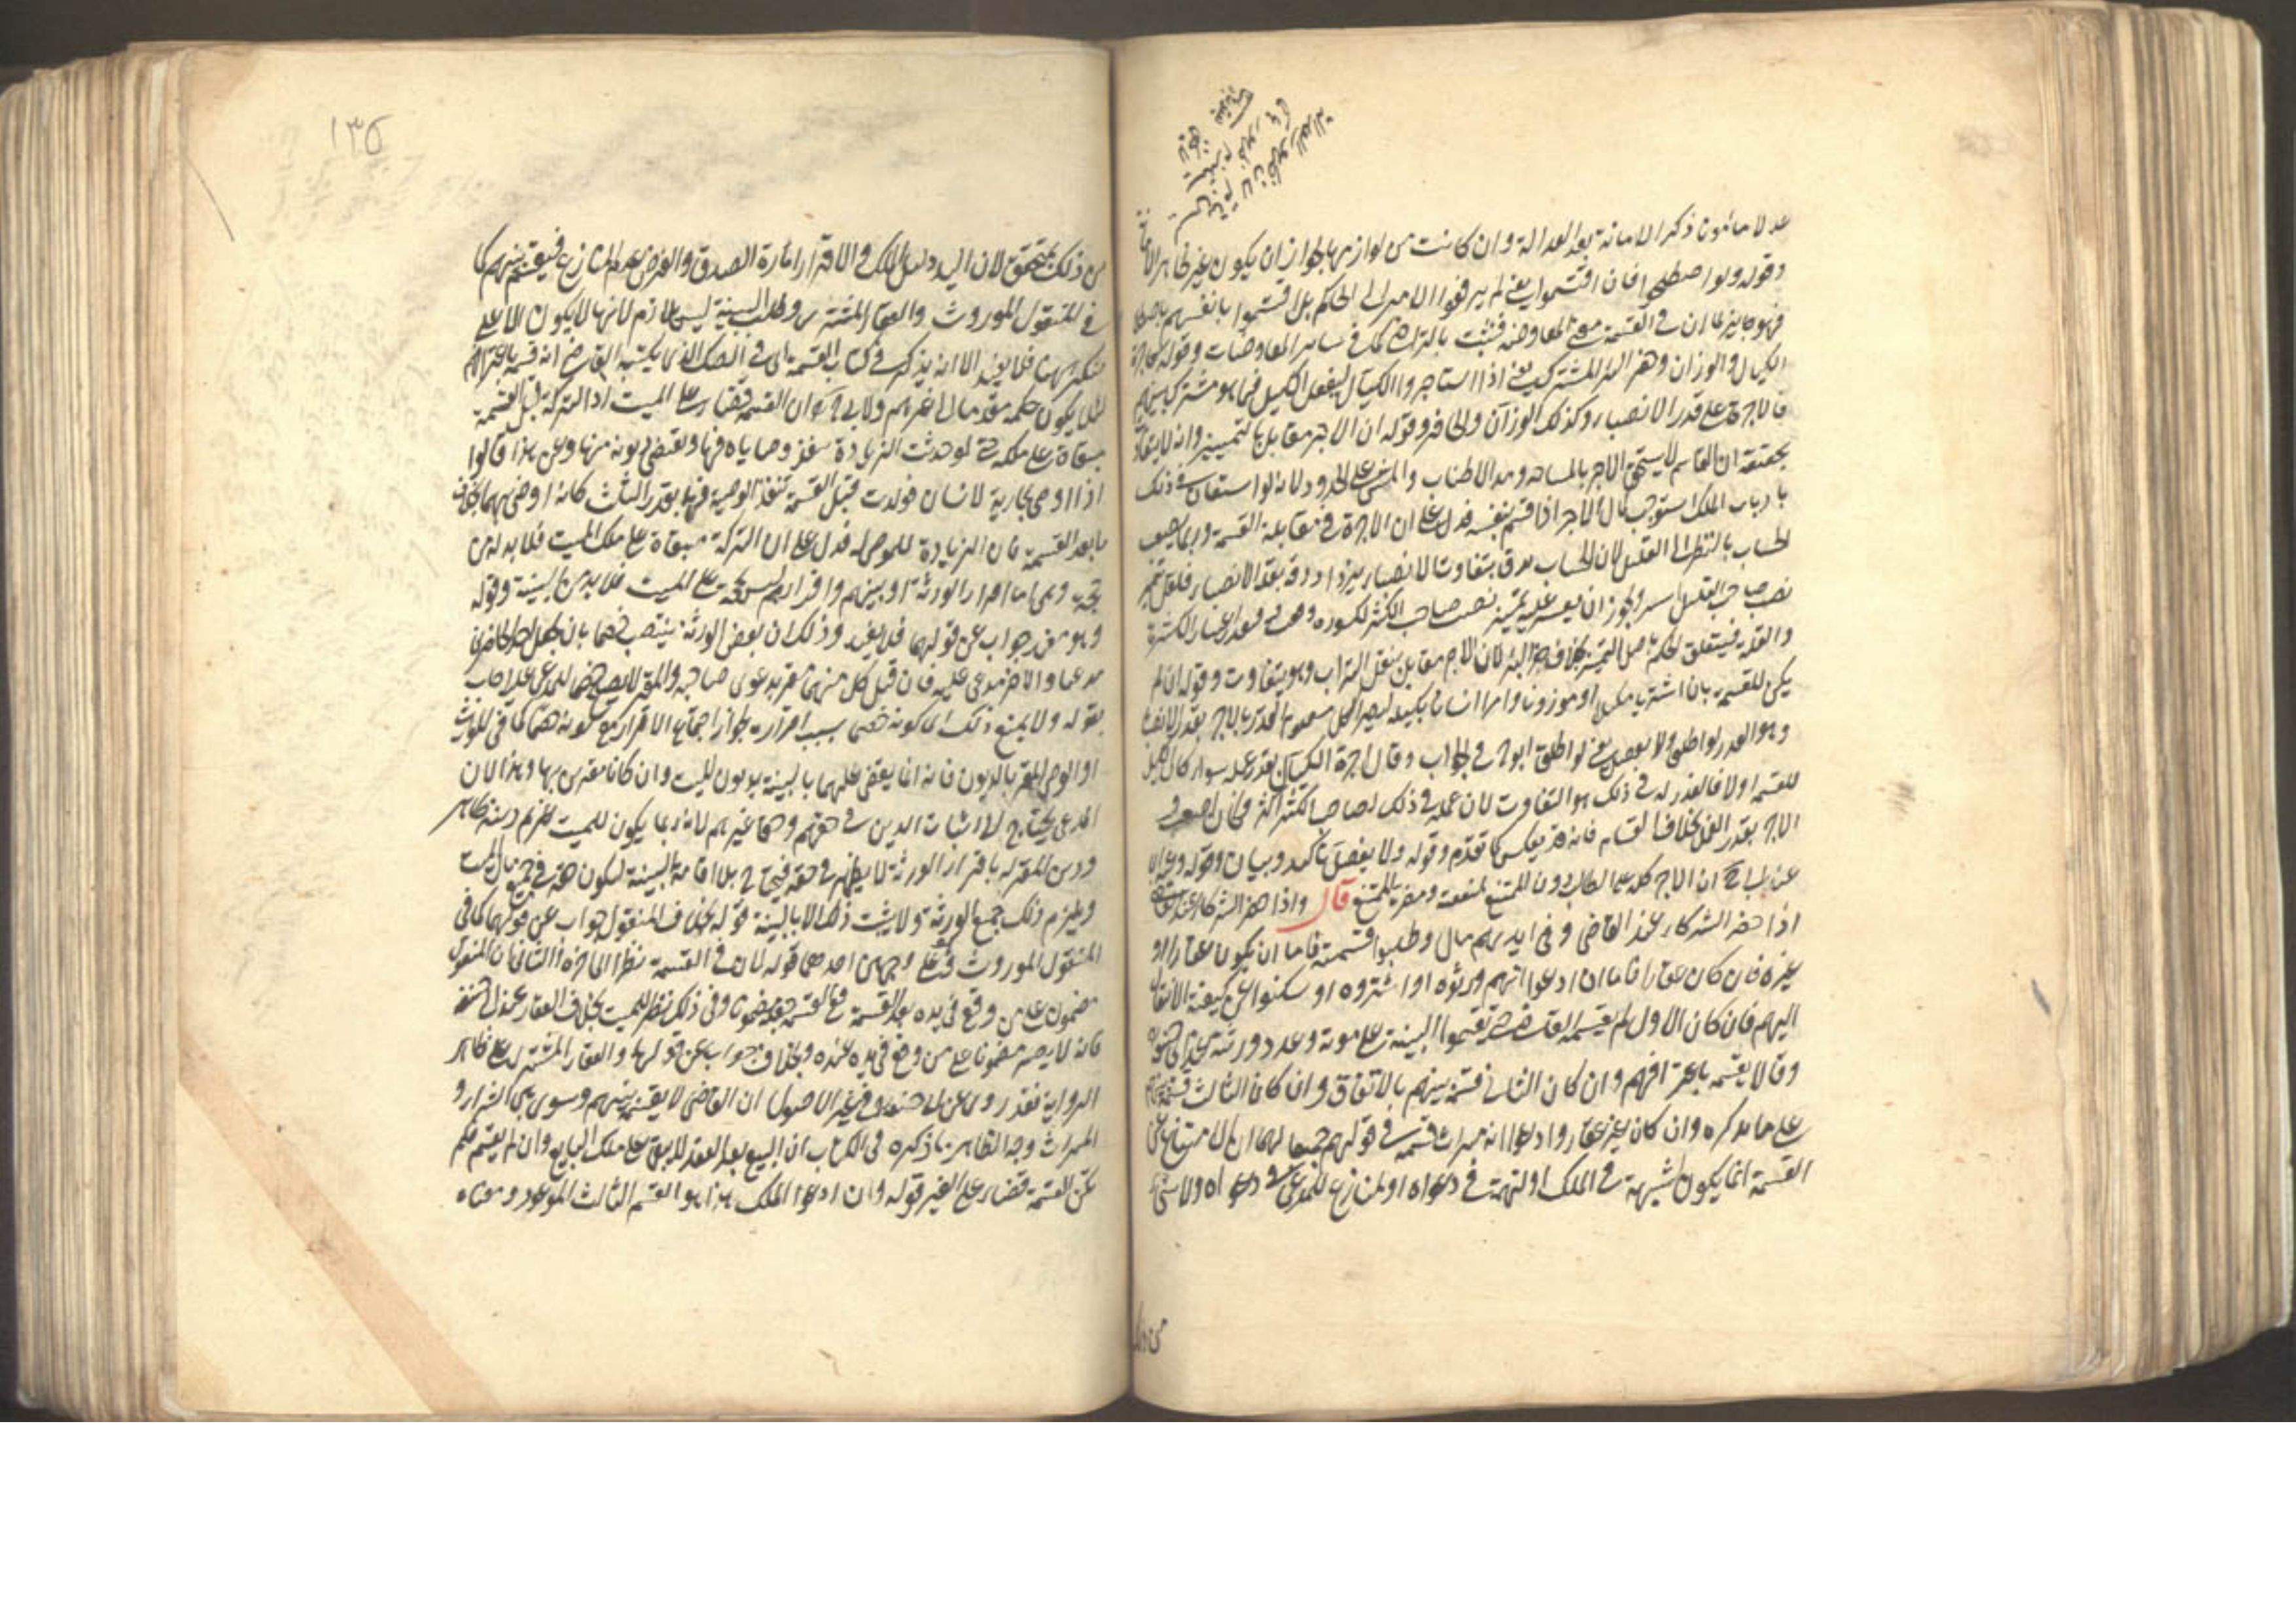 عدلا مأمونا ذكر الامانة بعد العدالة وان كانت من لوازمها لجواز ان يكون غير ظاهر الامانة
وقوله ولو اصطلحوا فان اقتسموا يعني لم يرفعوا الامر الى الحاكم بل اقتسموا بانفسهم باصطلاح
فهو جايز لما ان في القسمة معنى المعاوضة فتثبت بالتراضي كما في ساير المعاوضات وقوله كاجرة
الكيال والوزان وحفر البئر المشتركة يعني اذا استاجروا الكيال ليفعل الكيل فيما هو مشترك بينهم
فالاجرة على قدر الانصباء وكذلك الوزان والحافر وقوله ان الاجر مقابل بالتمييز وانه لا يتفاوت
تحقيقه ان القاسم لا يستحق الاجر بالمساحة ومد الاطناب والمشي على الحدود لانه لو استعان في ذلك
بارباب الملك استوجب كمال الاجر اذا قسم بنفسه فدل على ان الاجرة في مقابلة القسمة وربما يصعب
الحساب بالنظر الى القليل لان الحساب يدق بتفاوت الانصباء يزداد دقة بقلة الانصباء فلعل تمييز
نصيب صاحب القليل اشق ويجوز ان يعسر عليه تمييز نصيب صاحب الكثير لكسور فيه فتعذر اعتبار الكثرة
والقلة فيتعلق الحكم باصل التمييز بخلاف حفر البئر لان الاجر مقابل بنقل التراب وهو يتفاوت وقوله ان لم
يكن للقسمة بان اشتريا مكيلا او موزونا وامرا انسانا بكيله ليصير الكل معلوم القدر فالاجر بقدر الانصباء
وهو العذر لو اطلق ولا يفصل يعني لو اطلق ابو ح في الجواب وقال اجرة الكيال بقدر عمله سواء كان الكيل
للقسمة اولا فالعذر له في ذلك هو التفاوت لان عمله في ذلك لصاحب الكثير اكثر فكان اصعب و
الاجر بقدر العمل بخلاف القسام فانه قد يعكس كما تقدم وقوله ولا يفصل تاكيد وبيان وقوله وعنه اي
عن ابي ح ان الاجر كله على الطالب دون الممتنع لمنفعته ومضرة الممتنع قال واذا حضر الشركاء عند القاضي
اذا حضر الشركاء عند القاضي وفي ايديهم مال وطلبوا قسمته فاما ان يكون عقارا او
غيره فان كان عقارا فاما ان ادعوا انهم ورثوه او اشتروه او سكتوا عن كيفية الانتقال
اليهم فان كان الاول لم يقسمه القاضي حتى يقيموا البينة على موته وعدد ورثته عند ابي حنيفة
وقالا يقسمه باعترافهم وان كان الثاني قسمه بينهم بالاتفاق وان كان الثالث قسمه بينهم
على ما يذكره وان كان غير عقار وادعوا انه ميراث قسمه في قولهم جميعا لهما ان الامتناع عن
القسمة انما يكون لشبهة في الملك او لتهمة في دعواه او لمنازع للمدعي في دعواه ولا شيء
من ذلك
١٣٥
من ذلك بمتحقق لان اليد دليل الملك والاقرار امارة الصدق والفرض عدم المنازع فيقسم بينهم كما
في المنقول الموروث والعقار المشترى وطلب البينة ليس بلازم لانها لا يكون الا على
منكر ههنا فلا يفيد الا انه يذكر في كتاب القسمة اي في الصك الذي يكتبه القاضي انه قسمه باعترافهم
لئلا يكون حكمه متعديا الى غيرهم ولابي ح ان القسمة قضاء على الميت اذ التركة قبل القسمة
مبقاة على ملكه حتى لو حدثت الزيادة تنفذ وصاياه فيها ويقضى ديونه منها وعن هذا قالوا
اذا اوصى بجارية لانسان فولدت قبل القسمة تنفذ الوصية فيهما بقدر الثلث كانه اوصى بهما بخلاف
ما بعد القسمة فان الزيادة للموصى له فدل على ان التركة مبقاة على ملك الميت فلا بد له من
حجة وهي اما اقرار الورثة او بينتهم واقرارهم ليس بحجة على الميت فلا بد من البينة وقوله
وهو مفيد جواب عن قولهما فلا يفيد وذلك ان بعض الورثة ينتصب خصما بان يجعل احد الحاضرين
مدعيا والاخر مدعى عليه فان قيل كل منهما مقر بدعوى صاحبه والمقر لا يصلح خصما للمدعي عليه اجاب
بقوله ولا يمتنع ذلك اي كونه خصما بسبب اقراره لجواز اجتماع الاقرار مع كونه خصما كما في الوارث
او الوصي المقر بالديون فانه انما يقضى عليهما بالبينة بديون الميت وان كانا مقرين بها وهذا لان
المدعي يحتاج الى اثبات الدين في حقهم وحق غيرهم لانه ربما يكون للميت غريم دينه ظاهر
ودين المقر له باقرار الورثة لا يظهر في حقه فيحتاج الى اقامة البينة ليكون حقه في جميع مال الميت
ويلزم ذلك جميع الورثة ولا يثبت ذلك الا بالبينة قوله بخلاف المنقول جواب عن قولهما كما في
المنقول الموروث فرق على وجهين احدهما قوله لان في القسمة نظرا الى اخره والثاني ان المنقول
مضمون على من وقع في يده بعد القسمة وفي القسمة جعله مضمونا وفي ذلك نظر للميت بخلاف العقار عند ابي حنيفة
فانه لا يصير مضمونا على من وقع في يده عنده وبخلاف جواب عن قولهما والعقار المشترى على ظاهر
الرواية فقد روى عن ابي حنيفة في غير الاصول ان القاضي لا يقسمه بينهم وسوى بين الشراء و
الميراث وجه الظاهر ما ذكره في الكتاب ان المبيع بعد العقد لا يبقى على ملك البايع وان لم يقسم فلم
تكن القسمة قضاء على الغير قوله وان ادعوا الملك هذا هو القسم الثالث الموعود ومعناه